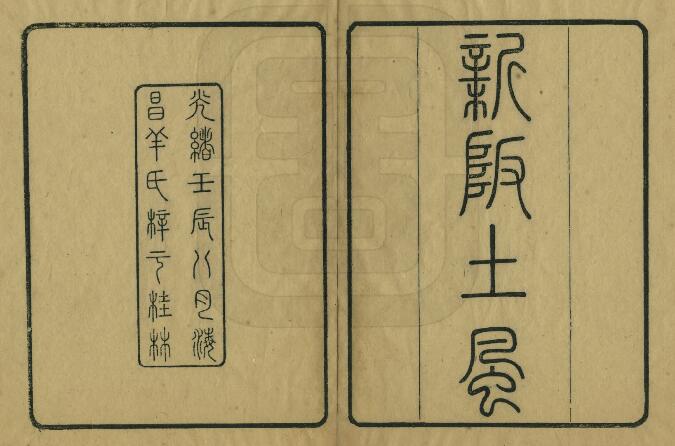 新阪土風
光緒壬辰八月海
昌羊氏梓于桂林